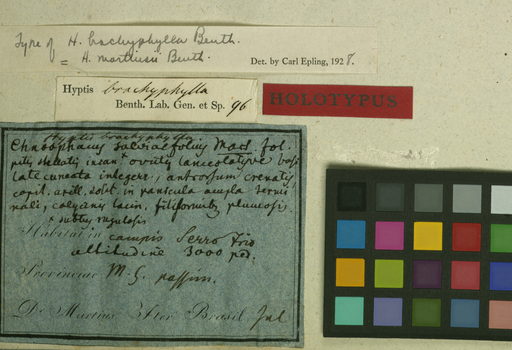 Type of H. brachyphylla Benth.
= H. martiusii Benth.
Det. by Carl Epling, 1928.
Hyptis brachyphylla
Benth. Lab. Gen. et Sp. 96
HOLOTYPUS
Hyptis brachyphylla
salviaefolius Mart. fol.
ovatis lanceolatisve basi
late cuneata integerr., antrorsum crenatis,
capit. axill. in panicula ampla termi
nali, calycum lacin. filiformib. plumosis.
subtus rugulosis
Habitat in campis Serro Frio
altitudine 3000 ped.
Provinciae M. G. passim.
De Martius Iter Brasil. Jul